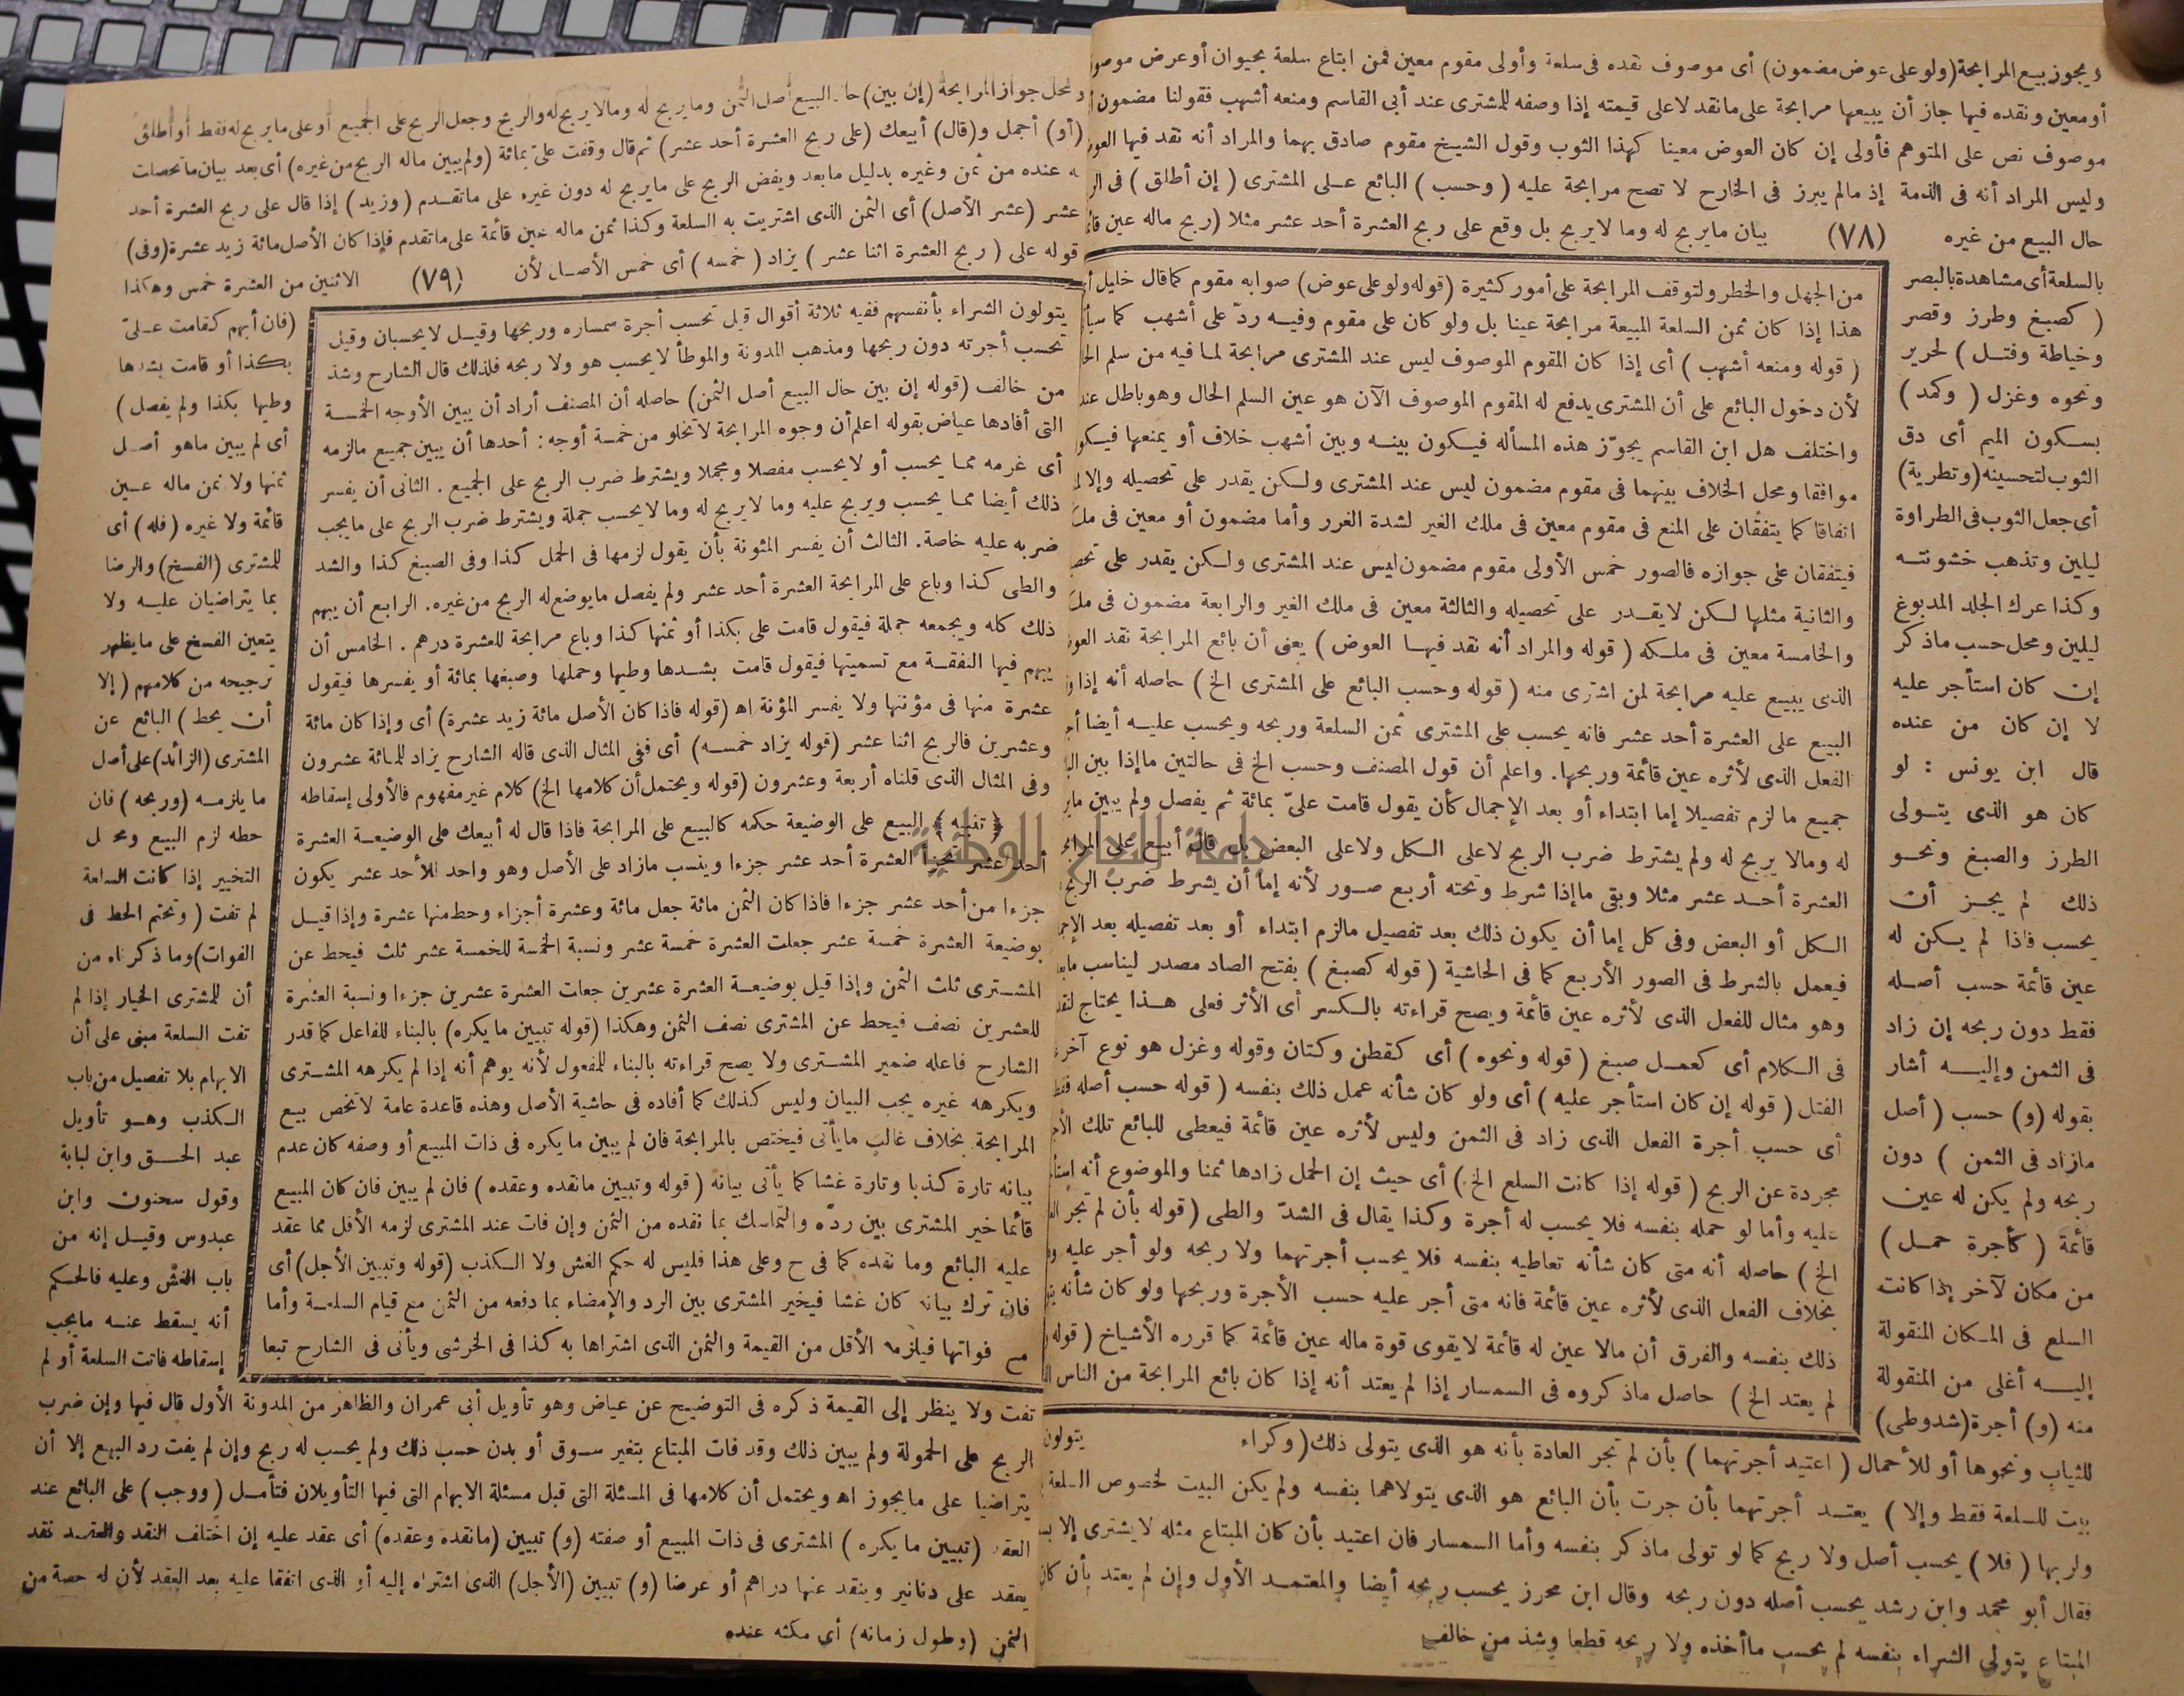 ويجوز بيع المرابحة (ولو على عوض مضمون) أى موصوف نقده فى سلعة وأولى مقوم معين فمن ابتاع سلعة بحيوان أو عرض
أو معين ونقده فيها جاز أن يبيعها مرابحة على مانقد لاعلى قيمته إذا وصفه للمشترى عند أبى القاسم ومنعه أشهب فقولنا مضمون
موصوف نص على المتوهم فأولى إن كان العوض معينا كهذا الثوب وقول الشيخ مقوم صادق بهما والمراد أنه نقد فيها
وليس المراد أنه فى الذمة إذ مالم يبرز فى الخارج لا تصح مرابحة عليه (وحسب) البائع عـلى المشترى (إن أطلق) فى
حال البيع من غيره (٧٨) بيان مايربح له وما لايربح بل وقع على ربح العشرة أحد عشر مثلا (ربح ماله عين
بالسلعة أى مشاهدة بالبصر
(كصبغ وطرز وقصر
وخياطة وفتـل) لحرير
ونحوه وغزل (وكمد)
بسكون الميم أى دق
الثوب لتحسينه (وتطرية)
أى جعل الثوب فى الطراوة
ليلين وتذهب خشونتـه
وكذا عرك الجلد المدبوغ
ليلين ومحل حسب ماذكر
إن كان استأجر عليه
لا إن كان من عنده
قال ابن يونس : لو
كان هو الذى يتـولى
الطرز والصبغ ونحـو
ذلك لم يجـز أن
يحسب فاذا لم يـكن له
عين قائمة حسب أصـله
فقط دون ربحه إن زاد
فى الثمن وإليـه أشار
بقوله (و) حسب (أصل
مازاد فى الثمن) دون
ربحه ولم يكن له عين
قائمة (كأجرة حمـل)
من مكان لآخر إذا كانت
السلع فى المـكان المنقولة
إليـه أغلى من المنقولة
منه (و) أجرة (شد وطى)
من الجهل والخطر ولتوقف المرابحة على أمور كثيرة (قوله ولو على عوض) صوابه مقوم كما قال خليل
هذا إذا كان ثمن السلعة المبيعة مرابحة عينا بل ولو كان على مقوم وفيـه ردّ على أشهب كما
(قوله ومنعه أشهب) أى إذا كان المقوم الموصوف ليس عند المشترى مرابحة لمـا فيه من سلم
لأن دخول البائع على أن المشترى يدفع له المقوم الموصوف الآن هو عين السلم الحال وهو باطل
واختلف هل ابن القاسم يجوّز هذه المسألة فيـكون بينـه وبين أشهب خلاف أو يمنعها
موافقا ومحل الخلاف بينهما فى مقوم مضمون ليس عند المشترى ولـكن يقدر على تحصيله وإلا
اتفاقا كما يتفقان على المنع فى مقوم معين فى ملك الغير لشدة الغرر وأما مضمون أو معين فى
فيتفقان على جوازه فالصور خمس الأولى مقوم مضمون ليس عند المشترى ولـكن يقدر على
والثانية مثلها لـكن لايقـدر على تحصيله والثالثة معين فى ملك الغير والرابعة مضمون فى
والخامسة معين فى ملـكه (قوله والمراد أنه نقد فيهـا العوض) يعنى أن بائع المرابحة نقد
الذى يبيع عليه مرابحة لمن اشترى منه (قوله وحسب البائع على المشترى الخ) حاصله أنه إذا
البيع على العشرة أحد عشر فانه يحسب على المشترى ثمن السلعة وربحه ويحسب عليـه أيضا
الفعل الذى لأثره عين قائمة وربحها. واعلم أن قول المصنف وحسب الخ فى حالتين ما إذا بين
جميع ما لزم تفصيلا إما ابتداء أو بعد الإجمال كأن يقول قامت علىّ بمائة ثم يفصل ولم يبين
له ومالا يربح له ولم يشترط ضرب الربح لاعلى الـكل ولاعلى البعض بل قال أبيع على
العشرة أحـد عشر مثلا وبقى ما إذا شرط وتحته أربع صـور لأنه إما أن يشرط ضرب
الـكل أو البعض وفى كل إما أن يكون ذلك بعد تفصيل مالزم ابتداء أو بعد تفصيله بعد
فيعمل بالشرط فى الصور الأربع كما فى الحاشية (قوله كصبغ) بفتح الصاد مصدر ليناسب
وهو مثال للفعل الذى لأثره عين قائمة ويصح قراءته بالـكسر أى الأثر فعلى هـذا يحتاج
فى الـكلام أى كعمـل صبغ (قوله ونحوه) أى كقطن وكتان وقوله وغزل هو نوع آخر
الفتل (قوله إن كان استأجر عليه) أى ولو كان شأنه عمل ذلك بنفسه (قوله حسب أصله
أى حسب أجرة الفعل الذى زاد فى الثمن وليس لأثره عين قائمة فيعطى للبائع تلك
مجردة عن الربح (قوله إذا كانت السلع الخ) أى حيث إن الحمل زادها ثمنا والموضوع أنه
عليه وأما لو حمله بنفسه فلا يحسب له أجرة وكذا يقال فى الشدّ والطى (قوله بأن لم تجر
الخ) حاصله أنه متى كان شأنه تعاطيه بنفسه فلا يحسب أجرتهما ولا ربحه ولو أجر عليه
بخلاف الفعل الذى لأثره عين قائمة فانه متى أجر عليه حسب الأجرة وربحها ولو كان شأنه
ذلك بنفسه والفرق أن مالا عين له قائمة لايقوى قوة ماله عين قائمة كما قرره الأشياخ (قوله
لم يعتد الخ) حاصل ماذكروه فى السمسار إذا لم يعتد أنه إذا كان بائع المرابحة من الناس
يتولون
للثياب ونحوها أو للأحمال (اعتيد أجرتهما) بأن لم تجر العادة بأنه هو الذى يتولى ذلك (وكراء
بيت للسلعة فقط وإلا) يعتـد أجرتهما بأن جرت بأن البائع هو الذى يتولاهما بنفسه ولم يكن البيت لخصوص السلعة
ولربها (فلا) يحسب أصل ولا ربح كما لو تولى ماذكر بنفسه وأما السمسار فان اعتيد بأن كان المبتاع مثله لايشترى إلا
فقال أبو محمد وابن رشد يحسب أصله دون ربحه وقال ابن محرز يحسب ربحه أيضا والمعتمـد الأول وإن لم يعتد بأن
المبتاع يتولى الشراء بنفسه لم يحسب ماأخذه ولا ربحه قطعا وشذ من خالف
ومحل جواز المرابحة (إن بين) حال البيع أصل الثمن وما يربح له ومالا يربح له والربح وجعل الربح على الجميع أو على مايربح له فقط أو أطلق
(أو) أجمل و(قال) أبيعك (على ربح العشرة أحد عشر) ثم قال وقفت علىّ بمائة (ولم يبين ماله الربح من غيره) أى بعد بيان ماتحصلت
به عنده من ثمن وغيره بدليل مابعد ويفض الربح على مايربح له دون غيره على ماتقـدم (وزيد) إذا قال على ربح العشرة أحد
عشر (عشر الأصل) أى الثمن الذى اشتريت به السلعة وكذا ثمن ماله عين قائمة على ماتقدم فإذا كان الأصل مائة زيد عشرة (وفى)
قوله على (ربح العشرة اثنا عشر) يزاد (خمسه) أى خمس الأصـل لأن (٧٩) الاثنين من العشرة خمس وهكذا
(فان أبهم كقامت عـلىّ
بكذا أو قامت بشدها
وطيها بكذا ولم يفصل)
أى لم يبين ماهو أصـل
ثمنها ولا ثمن ماله عـين
قائمة ولا غيره (فله) أى
للمشترى (الفسخ) والرضا
بما يتراضيان عليـه ولا
يتعين الفسخ على مايظهر
ترجيحه من كلامهم (إلا
أن يحط) البائع عن
المشترى (الزائد) على أصل
مايلزمـه (وربحه) فان
حطه لزم البيع ومحـل
التخيير إذا كانت السلعة
لم تفت (وتحتم الحط فى
الفوات) وما ذكرناه من
أن للمشترى الخيار إذا لم
تفت السلعة مبنى على أن
الابهام بلا تفصيل من باب
الـكذب وهـو تأويل
عبد الحـق وابن لبابة
وقول سحنون وابن
عبدوس وقيـل إنه من
باب الغش وعليه فالحـكم
أنه يسقط عنـه مايجب
إسقاطه فاتت السلعة أو لم
يتولون الشراء بأنفسهم ففيه ثلاثة أقوال قيل تحسب أجرة سمساره وربحها وقيـل لايحسبان وقيل
تحسب أجرته دون ربحها ومذهب المدونة والموطأ لايحسب هو ولا ربحه فلذلك قال الشارح وشذ
من خالف (قوله إن بين حال البيع أصل الثمن) حاصله أن المصنف أراد أن يبين الأوجه الخمسـة
التى أفادها عياض بقوله اعلم أن وجوه المرابحة لاتخلو من خمسة أوجه : أحدها أن يبين جميع مالزمه
أى غرمه ممـا يحسب أو لايحسب مفصلا ومجملا ويشترط ضرب الربح على الجميع . الثانى أن يفسر
ذلك أيضا ممـا يحسب ويربح عليه وما لايربح له وما لايحسب جملة ويشترط ضرب الربح على مايجب
ضربه عليه خاصة. الثالث أن يفسر المئونة بأن يقول لزمها فى الحمل كذا وفى الصبغ كذا والشد
والطى كذا وباع على المرابحة العشرة أحد عشر ولم يفصل مايوضع له الربح من غيره. الرابع أن يبهم
ذلك كله ويجمعه جملة فيقول قامت على بكذا أو ثمنها كذا وباع مرابحة للعشرة درهم . الخامس أن
يبهم فيها النفقـة مع تسميتها فيقول قامت بشـدها وطيها وحملها وصبغها بمائة أو يفسرها فيقول
عشرة منها فى مؤنتها ولا يفسر المؤنة اه (قوله فاذا كان الأصل مائة زيد عشرة) أى وإذا كان مائة
وعشرين فالربح اثنا عشر (قوله يزاد خمسـه) أى ففى المثال الذى قاله الشارح يزاد للمـائة عشرون
وفى المثال الذى قلناه أربعة وعشرون (قوله ويحتمل أن كلامها الخ) كلام غير مفهوم فالأولى إسقاطه
﴿تنبيه﴾ البيع على الوضيعة حكمه كالبيع على المرابحة فاذا قال له أبيعك على الوضيعـة العشرة
أحد عشر تجزأ العشرة أحد عشر جزءا وينسب مازاد على الأصل وهو واحد للأحد عشر يكون
جزءا من أحد عشر جزءا فاذا كان الثمن مائة جعل مائة وعشرة أجزاء وحط منها عشرة وإذا قيـل
بوضيعة العشرة خمسة عشر جعلت العشرة خمسة عشر ونسبة الخمسة للخمسة عشر ثلث فيحط عن
المشـترى ثلث الثمن وإذا قيل بوضيعـة العشرة عشرين جعلت العشرة عشرين جزءا ونسبة العشرة
للعشرين نصف فيحط عن المشترى نصف الثمن وهكذا (قوله تبيين مايكره) بالبناء للفاعل كما قدر
الشارح فاعله ضمير المشـترى ولا يصح قراءته بالبناء للمفعول لأنه يوهم أنه إذا لم يكرهه المشـترى
ويكرهه غيره يجب البيان وليس كذلك كما أفاده فى حاشية الأصل وهذه قاعدة عامة لاتخص بيع
المرابحة بخلاف غالب مايأتى فيختص بالمرابحة فان لم يبين مايكره فى ذات المبيع أو وصفه كان عدم
بيانه تارة كذبا وتارة غشا كما يأتى بيانه (قوله وتبيين مانقده وعقده) فان لم يبين فان كان المبيع
قائما خير المشترى بين ردّه والتماسك بما نقده من الثمن وإن فات عند المشترى لزمه الأقل مما عقد
عليه البائع وما نقده كما فى ح وعلى هذا فليس له حكم الغش ولا الـكذب (قوله وتبيين الأجل) أى
فان ترك بيانه كان غشا فيخير المشترى بين الرد والإمضاء بما دفعه من الثمن مع قيام السلعـة وأما
مع فواتها فيلزمه الأقل من القيمة والثمن الذى اشتراها به كذا فى الخرشى ويأتى فى الشارح تبعا
تفت ولا ينظر إلى القيمة ذكره فى التوضيح عن عياض وهو تأويل أبى عمران والظاهر من المدونة الأول قال فيها وإن ضرب
الربح على الحمولة ولم يبين ذلك وقد فات المبتاع بتغير سـوق أو بدن حسب ذلك ولم يحسب له ربح وإن لم يفت رد البيع إلا أن
يتراضيا على مايجوز اه ويحتمل أن كلامها فى المسئلة التى قبل مسئلة الابهام التى فيها التأويلان فتأمـل (ووجب) على البائع عند
العقد (تبيين مايكره) المشترى فى ذات المبيع أو صفته (و) تبيين (مانقده وعقده) أى عقد عليه إن اختلف النقد والعقـد فقد
يعقد على دنانير وينقد عنها دراهم أو عرضا (و) تبيين (الأجل) الذى اشتراه إليه أو الذى اتفقا عليه بعد العقد لأن له حصة من
الثمن (وطول زمانه) أى مكثه عنده
جامعة النجاح الوطنية